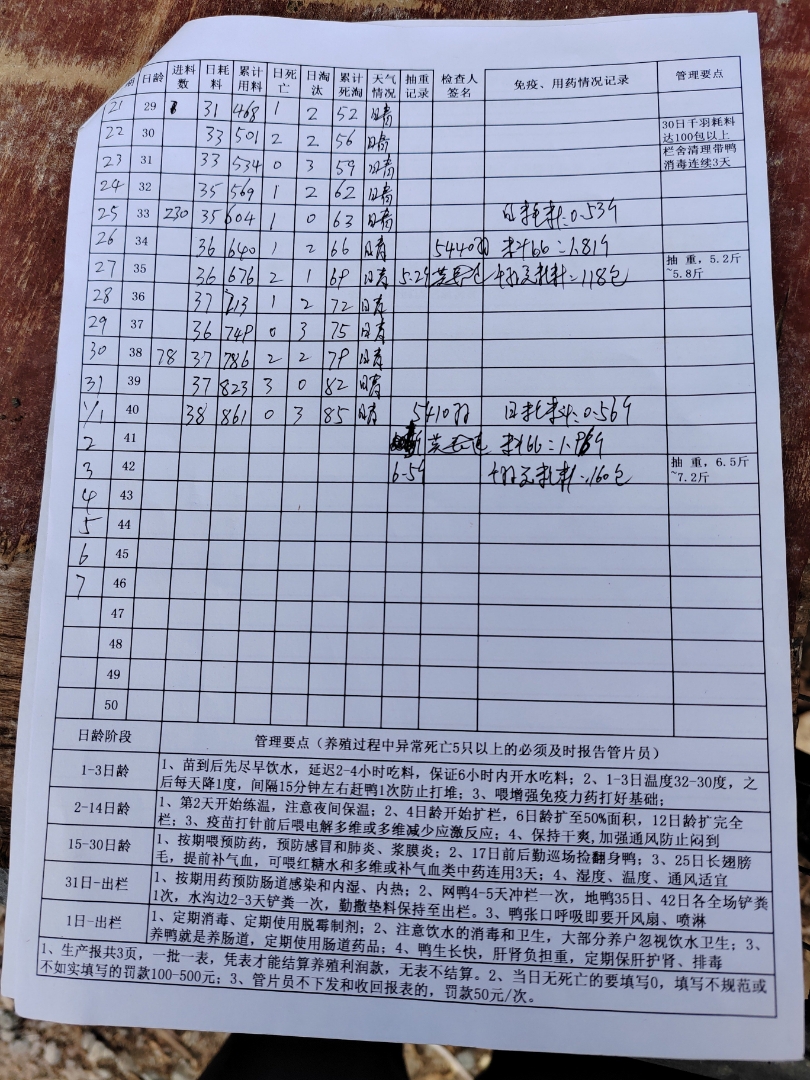 期 日龄 进料数 日耗料 累计用料 日死亡 日淘汰 累计死淘 天气情况 抽重记录 检查人签名 免疫、用药情况记录 管理要点
21 29 31 468 1 2 52 晴
22 30 33 501 2 2 56 晴 30日千羽耗料达100包以上
23 31 33 534 0 3 59 晴 栏舍清理带鸭消毒连续3天
24 32 35 569 1 2 62 晴
25 33 230 35 604 1 0 63 晴 日耗料:0.53斤
26 34 36 640 1 2 66 晴 5440羽 料比=1.81斤
27 35 36 676 2 1 69 晴 5.2斤 千羽耗料=118包 抽重，5.2斤~5.8斤
28 36 37 713 1 2 72 晴
29 37 36 749 0 3 75 晴
30 38 78 37 786 2 2 79 晴
31 39 37 823 3 0 82 晴
1/1 40 38 861 0 3 85 晴 5410羽 日耗料:0.56斤
2 41
3 42 6.5斤 千羽耗料=160包 抽重，6.5斤~7.2斤
4 43
5 44
6 45
7 46
47
48
49
50
日龄阶段 管理要点（养殖过程中异常死亡5只以上的必须及时报告管片员）
1-3日龄 1、苗到后先尽早饮水，延迟2-4小时吃料，保证6小时内开水吃料；2、1-3日温度32-30度，之
后每天降1度，间隔15分钟左右赶鸭1次防止打堆；3、喂增强免疫力药打好基础；
2-14日龄 1、第2天开始练温，注意夜间保温；2、4日龄开始扩栏，6日龄扩至50%面积，12日龄扩完全
栏；3、疫苗打针前后喂电解多维或多维减少应激反应；4、保持干爽,加强通风防止闷到
15-30日龄 1、按期喂预防药，预防感冒和肺炎、浆膜炎；2、17日前后勤巡场捡翻身鸭；3、25日长翅膀
毛，提前补气血，可喂红糖水和多维或补气血类中药连用3天；4、湿度、温度、通风适宜
31日-出栏 1、按期用药预防肠道感染和内湿、内热；2、网鸭4-5天冲栏一次，地鸭35日、42日各全场铲粪
1次，水沟边2-3天铲粪一次，勤撒垫料保持至出栏。3、鸭张口呼吸即要开风扇、喷淋
1日-出栏 1、定期消毒、定期使用脱霉制剂；2、注意饮水的消毒和卫生，大部分养户忽视饮水卫生；3、
养鸭就是养肠道，定期使用肠道药品；4、鸭生长快，肝肾负担重，定期保肝护肾、排毒
1、生产报共3页，一批一表，凭表才能结算养殖利润款，无表不结算。2、当日无死亡的要填写0，填写不规范或
不如实填写的罚款100-500元；3、管片员不下发和收回报表的，罚款50元/次。